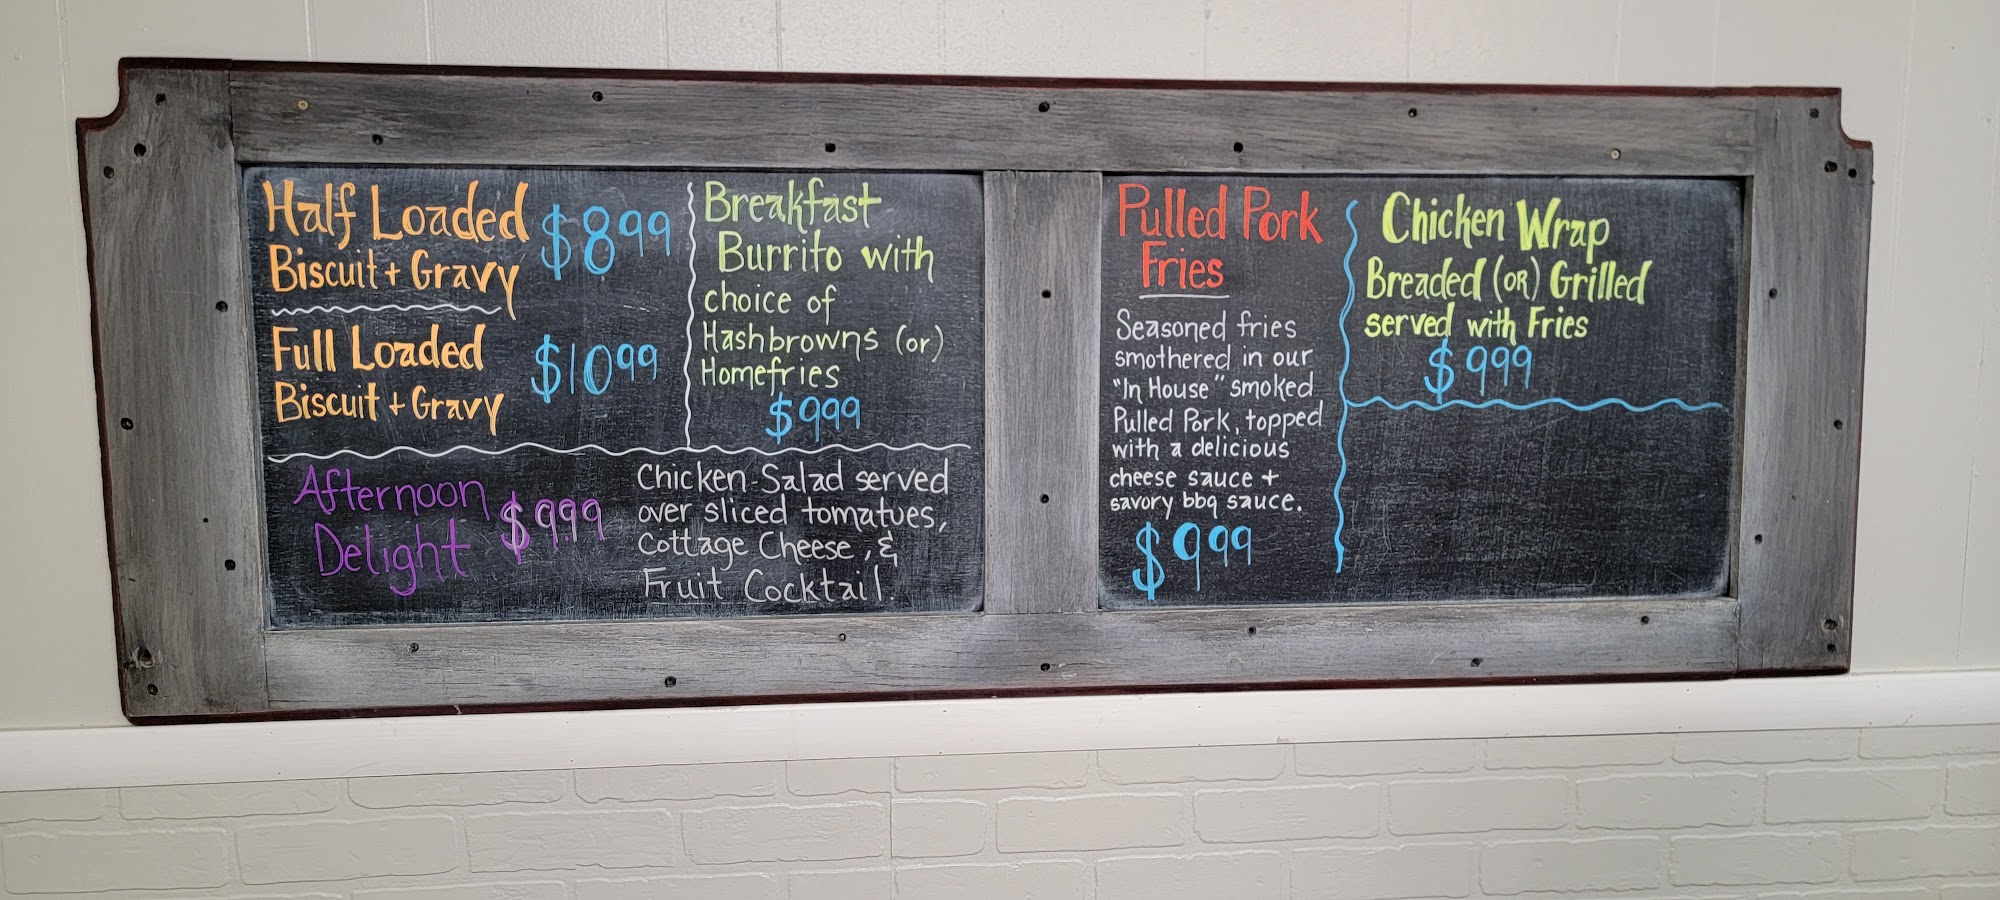 Half Loaded
Biscuit + Gravy
$8.99
Full Loaded
Biscuit + Gravy
$10.99
Breakfast
Burrito with
choice of
Hashbrowns (or)
Homefries
$9.99
Afternoon
Delight
$9.99
Chicken-Salad served
over sliced tomatoes,
Cottage Cheese, &
Fruit Cocktail.
Pulled Pork
Fries
Seasoned fries
smothered in our
"In House" smoked
Pulled Pork, topped
with a delicious
cheese sauce +
savory bbq sauce.
$9.99
Chicken Wrap
Breaded (OR) Grilled
served with Fries
$9.99